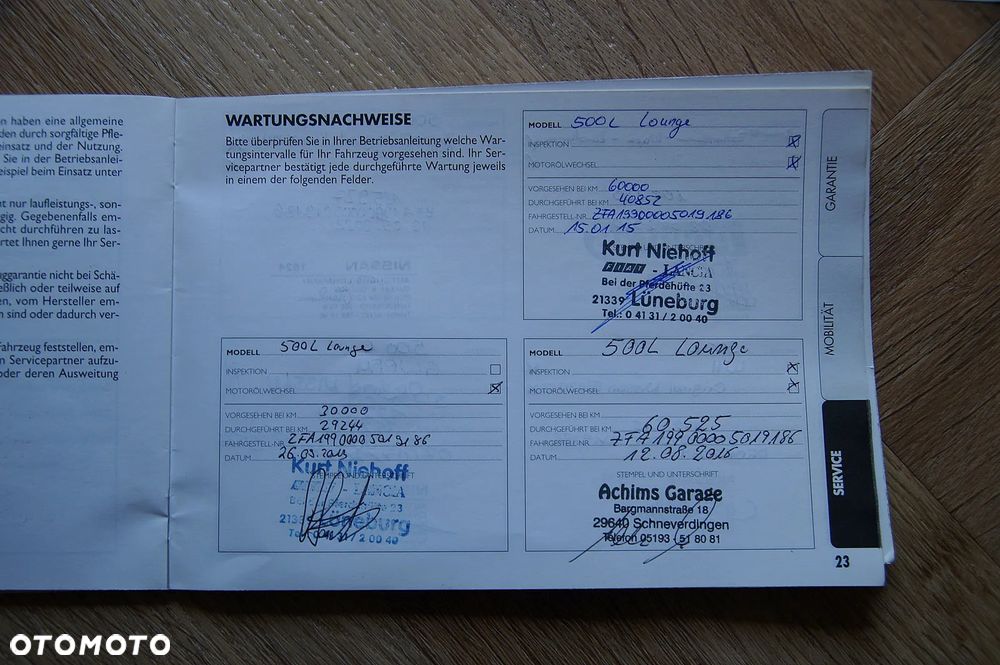 n haben eine allgemeine
den durch sorgfältige Pfle-
einsatz und der Nutzung.
Sie in der Betriebsanlei-
eispiel beim Einsatz unter
t nur laufleistungs-, son-
gig. Gegebenenfalls em-
cht durchführen zu las-
rtet Ihnen gerne Ihr Ser-
ggarantie nicht bei Schä-
ßlich oder teilweise auf
en, vom Hersteller em-
n sind oder dadurch ver-
ahrzeug feststellen, em-
n Servicepartner aufzu-
oder deren Ausweitung
WARTUNGSNACHWEISE
Bitte überprüfen Sie in Ihrer Betriebsanleitung welche War-
tungsintervalle für Ihr Fahrzeug vorgesehen sind. Ihr Ser-
vicepartner bestätigt jede durchgeführte Wartung jeweils
in einem der folgenden Felder.
MODELL 500L Lounge
INSPEKTION
MOTORÖLWECHSEL
VORGESEHEN BEI KM 60000
DURCHGEFÜHRT BEI KM 40852
FAHRGESTELL-NR. ZFA19900005019186
DATUM 15.01.15
Kurt Niehoff
FIAT - LANCIA
Bei der Pferdehütte 23
21339 Lüneburg
Tel.: 0 41 31 / 2 00 40
MODELL 500L Lounge
INSPEKTION
MOTORÖLWECHSEL
VORGESEHEN BEI KM 30000
DURCHGEFÜHRT BEI KM 29244
FAHRGESTELL-NR. ZFA19900005019186
DATUM 26.09.2013
STEMPEL UND UNTERSCHRIFT
Kurt Niehoff
- LANCIA
23
Lüneburg
31 / 2 00 40
MODELL 500L Lounge
INSPEKTION
MOTORÖLWECHSEL
VORGESEHEN BEI KM
DURCHGEFÜHRT BEI KM 60.525
FAHRGESTELL-NR. ZFA19900005019186
DATUM 12.08.2016
STEMPEL UND UNTERSCHRIFT
Achims Garage
Bargmannstraße 18
29640 Schneverdingen
Telefon 05193 - 51 80 81
GARANTIE
MOBILITÄT
SERVICE
23
OTOMOTO